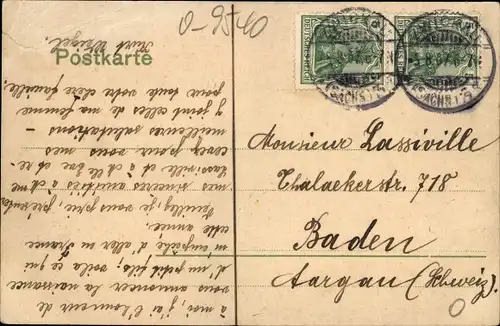 0-9540
Postkarte
(SACHS.)
(SACHS.)
Monsieur Lassiville
Thalaekerstr. 718
Baden
Aargau (Schweiz).
à moi, j'ai l'honneur de
vous annoncer la naissance
d'un petit fils, voilà ce qui
m'empêche d'aller en France
cette année.
Veuillez, je vous prie, présenter
mes sincères amitiés à Mme
Lassiville et à Mlle Eve et re-
cevez pour vous mes
meilleures salutations -
y joint celles de ma femme
pour toute votre chère famille.
Kurt